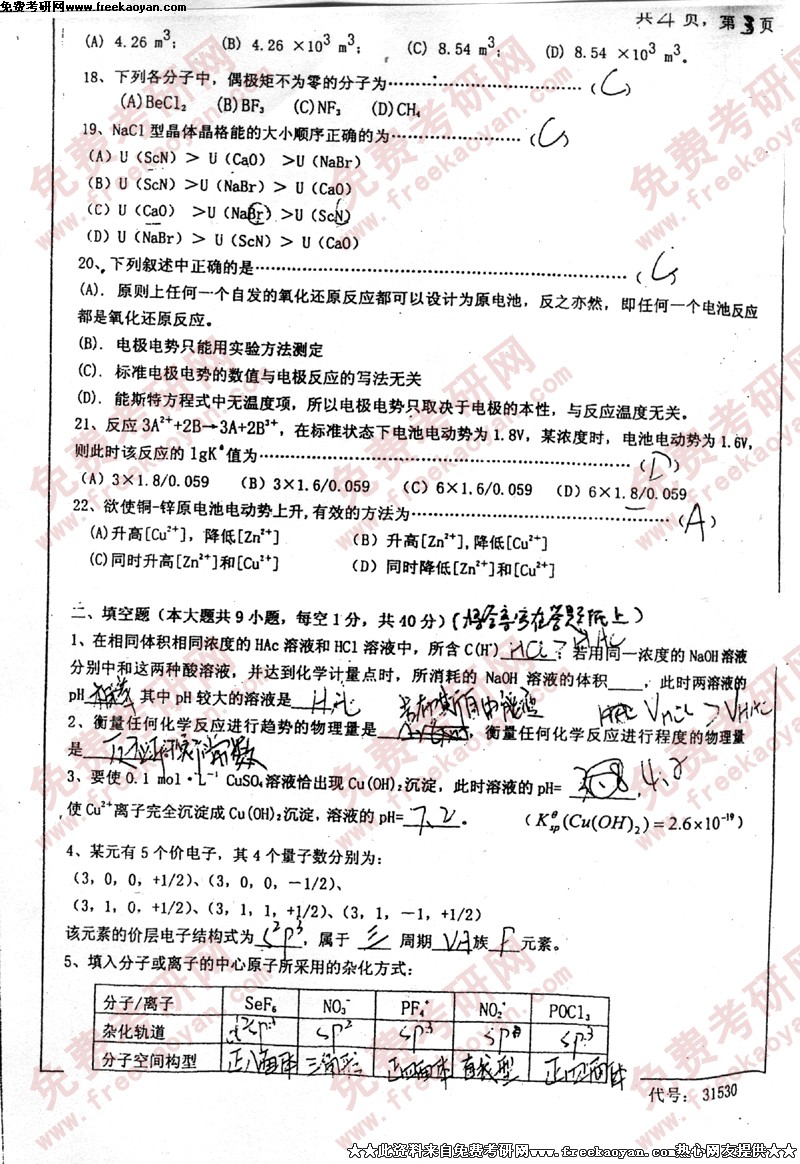 免费考研网
www.freekaoyan.com
共4页，第3页
(A) 4.26 m³； (B) 4.26 ×10³ m³； (C) 8.54 m³； (D) 8.54 ×10³ m³。
18、下列各分子中，偶极矩不为零的分子为…………………………（C）
(A)BeCl₂ (B)BF₃ (C)NF₃ (D)CH₄
19、NaCl 型晶体晶格能的大小顺序正确的为…………………（C）
(A) U（ScN）＞ U（CaO） ＞U（NaBr）
(B) U（ScN）＞U（NaBr）＞ U（CaO）
(C) U（CaO） ＞U（NaBr）＞U（ScN）
(D) U（NaBr）＞ U（ScN）＞ U（CaO）
20、下列叙述中正确的是……………………………………………………（C）
(A). 原则上任何一个自发的氧化还原反应都可以设计为原电池，反之亦然，即任何一个电池反应
都是氧化还原反应。
(B). 电极电势只能用实验方法测定
(C). 标准电极电势的数值与电极反应的写法无关
(D). 能斯特方程式中无温度项，所以电极电势只取决于电极的本性，与反应温度无关。
21、反应 3A²⁺+2B→3A+2B³⁺，在标准状态下电池电动势为 1.8V，某浓度时，电池电动势为 1.6V，
则此时该反应的 lgK°值为……………………………………………………（D）
(A) 3×1.8/0.059 (B) 3×1.6/0.059 (C) 6×1.6/0.059 (D) 6×1.8/0.059
22、欲使铜-锌原电池电动势上升,有效的方法为……………………………………（A）
(A)升高[Cu²⁺]，降低[Zn²⁺] (B) 升高[Zn²⁺],降低[Cu²⁺]
(C)同时升高[Zn²⁺]和[Cu²⁺] (D) 同时降低[Zn²⁺]和[Cu²⁺]
二、填空题（本大题共 9 小题，每空 1 分，共 40 分）（将答案写在答题纸上）
1、在相同体积相同浓度的 HAc 溶液和 HCl 溶液中，所含 C(H⁺) HCl > HAc；若用同一浓度的 NaOH 溶液
分别中和这两种酸溶液，并达到化学计量点时，所消耗的 NaOH 溶液的体积____，此时两溶液的
pH 其中 pH 较大的溶液是 HAc V HCl > V HAc
2、衡量任何化学反应进行趋势的物理量是 吉布斯自由能变，衡量任何化学反应进行程度的物理量
是 常数
3、要使 0.1 mol·L⁻¹ CuSO₄溶液恰出现 Cu(OH)₂沉淀，此时溶液的 pH= 4.2，
使 Cu²⁺离子完全沉淀成 Cu(OH)₂沉淀，溶液的 pH= 7.2 。 （K°sp(Cu(OH)₂)=2.6×10⁻¹⁹）
4、某元有 5 个价电子，其 4 个量子数分别为：
（3, 0, 0, +1/2）、（3, 0, 0, －1/2）、
（3, 1, 0, +1/2）、（3, 1, 1, +1/2）、（3, 1, －1, +1/2）
该元素的价层电子结构式为 s²p³，属于 三 周期 VA 族 P 元素。
5、填入分子或离子的中心原子所采用的杂化方式：
分子/离子 SeF₆ NO₃⁻ PF₄⁺ NO₂⁺ POCl₃
杂化轨道 sp² sp³ sp sp³
分子空间构型 正八面体 三角形 正四面体 直线型 正四面体
代号： 31530
★★此资料来自免费考研网www.freekaoyan.com热心网友提供★★